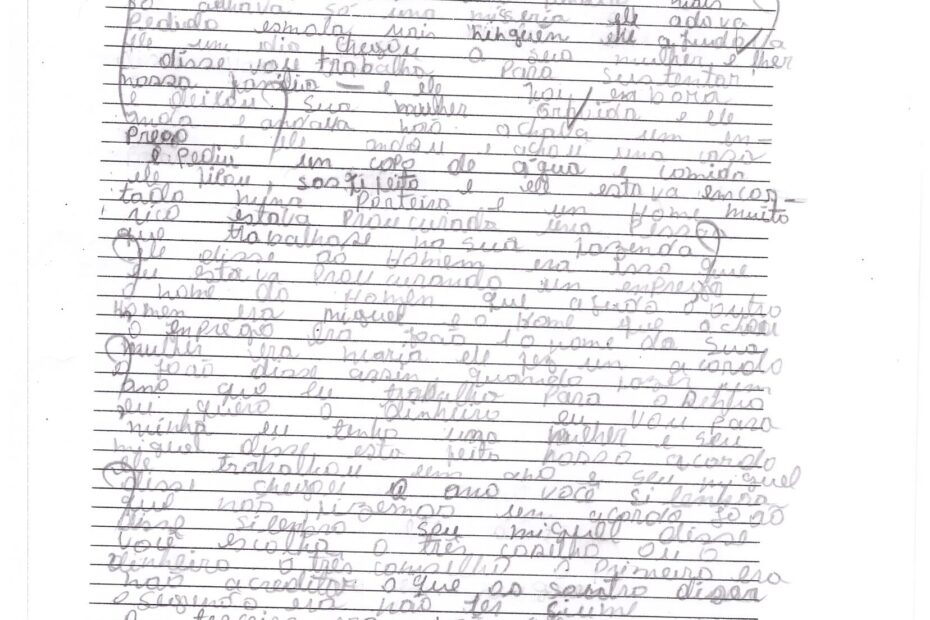 só achava só uma miseria ele adova
Pedido esmola mais ninguém ele ajudo/a
ele um dia chegou a seu mulher e lher
disse vou trabalha para sustentar
nossa familia — e ele foi embora
e deixou sua mulher Grávida e ele
anda e andava não achava um en-
Prego e ele andou e achou uma casa
e Pediu um copo de água e comida
ele ficou sastifeito e ele estava encos-
tado numa Porteira e um Home muito
rico estava Proucurado uma Pesso
que trabalhase na sua fazenda
Ele disse ao Homem era isso que
eu estava Proucurando um emprego
o nome do Homem que ajuda o outro
Homem era miguel e o Home que achou
o emprego era João e o nome da sua
mulher era maria ele fez um acordo
e João disse assim quando fazer um
ano que eu trabalho para o
eu quero o dinheiro eu vou para
minha eu tenho uma mulher e seu
miguel disse esta feito nosso acordo
ele trabalhou um ano e seu miguel
disse chegou o ano você si lembra
que nós fizemos um acordo João
disse si lembro seu miguel disse
você escolha o três cosilho ou o
dinheiro o três comselho o Primeiro era
não acreditar o que os
e segundo era não ter
O terceiro